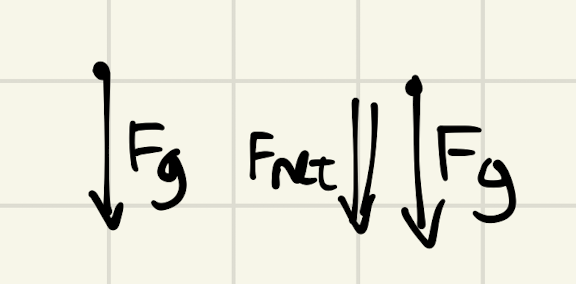 Fg Fnet Fg